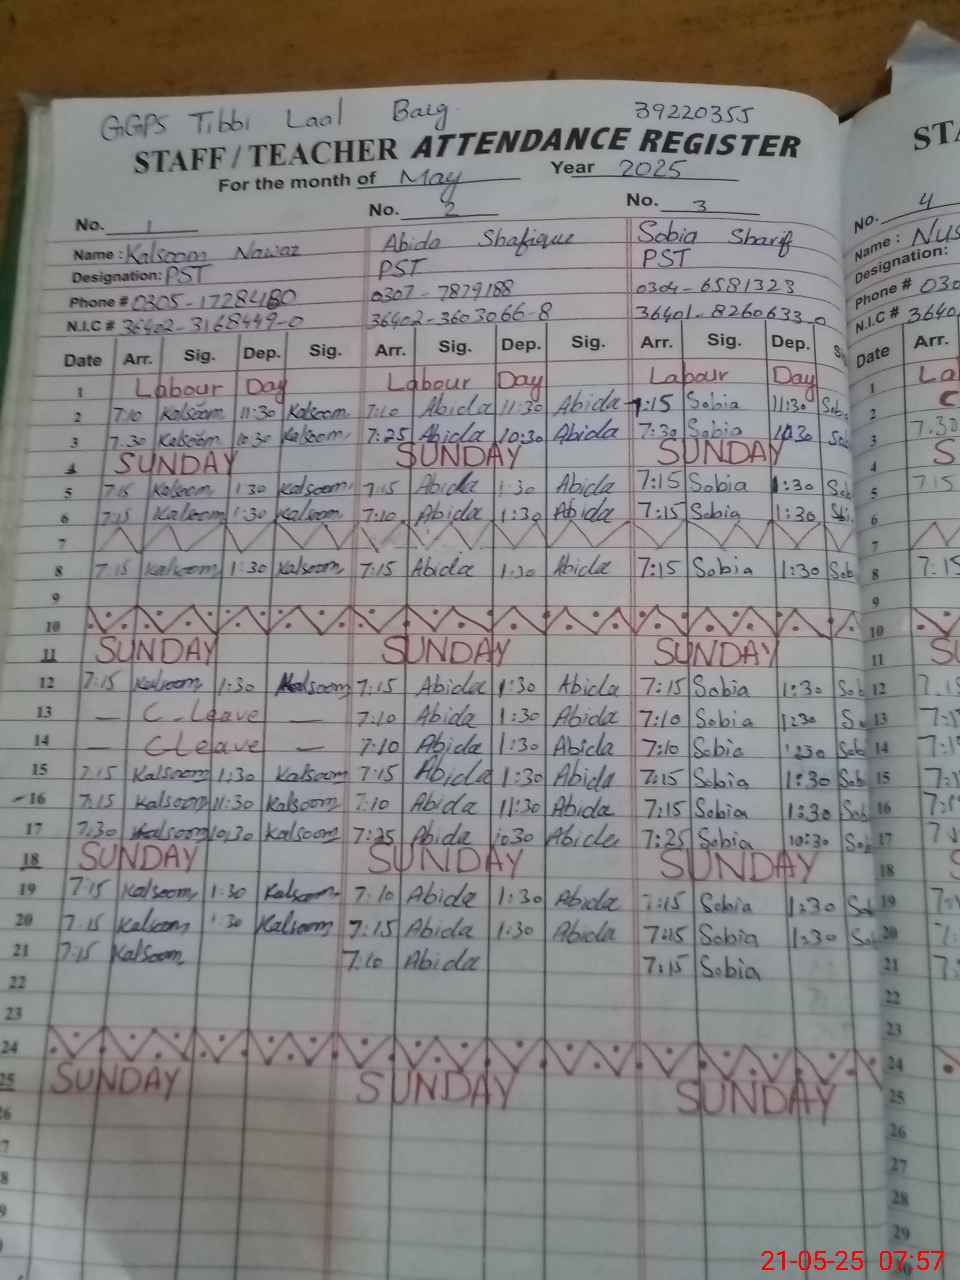 GGPS Tibbi Laal Baig 39220355
STAFF / TEACHER ATTENDANCE REGISTER
For the month of May Year 2025
No. 1 No. 2 No. 3
Name : Kalsoom Nawaz Abida Shafique Sobia Sharif
Designation: PST PST PST
Phone # 0305-1728480 0307-7879188 0304-6581323
N.I.C # 36402-3168449-0 36402-3603066-8 36401-8260633-0
Date Arr. Sig. Dep. Sig. Arr. Sig. Dep. Sig. Arr. Sig. Dep.
1 Labour Day Labour Day Labour Day
2 7:10 Kalsoom 11:30 Kalsoom 7:10 Abida 11:30 Abida 7:15 Sobia 11:30 Sob
3 7.30 Kalsoom 10:30 Kalsoom 7:25 Abida 10:30 Abida 7:30 Sobia 10.30 Sob
4 SUNDAY SUNDAY SUNDAY
5 7:15 Kalsoom 1:30 Kalsoom 7:15 Abida 1:30 Abida 7:15 Sobia 1:30 Sob
6 7:15 Kalsoom 1:30 Kalsoom 7:10 Abida 1:30 Abida 7:15 Sobia 1:30
7
8 7:15 Kalsoom 1:30 Kalsoom 7:15 Abida 1:30 Abida 7:15 Sobia 1:30 Sob
9
10
11 SUNDAY SUNDAY SUNDAY
12 7:15 Kalsoom 1:30 Kalsoom 7:15 Abida 1:30 Abida 7:15 Sobia 1:30 Sob
13 — C-Leave — 7:10 Abida 1:30 Abida 7:10 Sobia 1:30 S
14 — C Leave — 7:10 Abida 1:30 Abida 7:10 Sobia 1:30 Sob
15 7:15 Kalsoom 1:30 Kalsoom 7:15 Abida 1:30 Abida 7:15 Sobia 1:30 Sob
16 7:15 Kalsoom 11:30 Kalsoom 7:10 Abida 11:30 Abida 7:15 Sobia 11:30 Sob
17 7:30 Kalsoom 10:30 Kalsoom 7:25 Abida 10:30 Abida 7:25 Sobia 10:30 Sob
18 SUNDAY SUNDAY SUNDAY
19 7:15 Kalsoom 1:30 Kalsoom 7:10 Abida 1:30 Abida 7:15 Sobia 1:30 Sob
20 7:15 Kalsoom 1:30 Kalsoom 7:15 Abida 1:30 Abida 7:15 Sobia 1:30 Sob
21 7:15 Kalsoom 7:10 Abida 7:15 Sobia
22
23
24
25 SUNDAY SUNDAY SUNDAY
26
7
8
9
STA
No. 4
Name : Nus
Designation:
Phone # 030
N.I.C # 3640
Date Arr.
1 La
2 7.30
3
4 S
5 7:15
6
7
8 7:15
9
10
11 SU
12 7.15
13 7:1
14 7:1
15 7:1
16 7:1
17
18 S
19 7:1
20 7:
21 7:
22
23
24
25
26
27
28
29
30
21-05-25 07:57